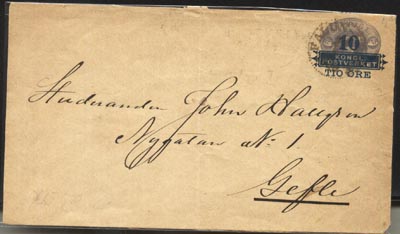 10
KONGL
POSTVERKET
TIO ÖRE
Studeranden John Hallgren
Nygatan No 1
Gefle